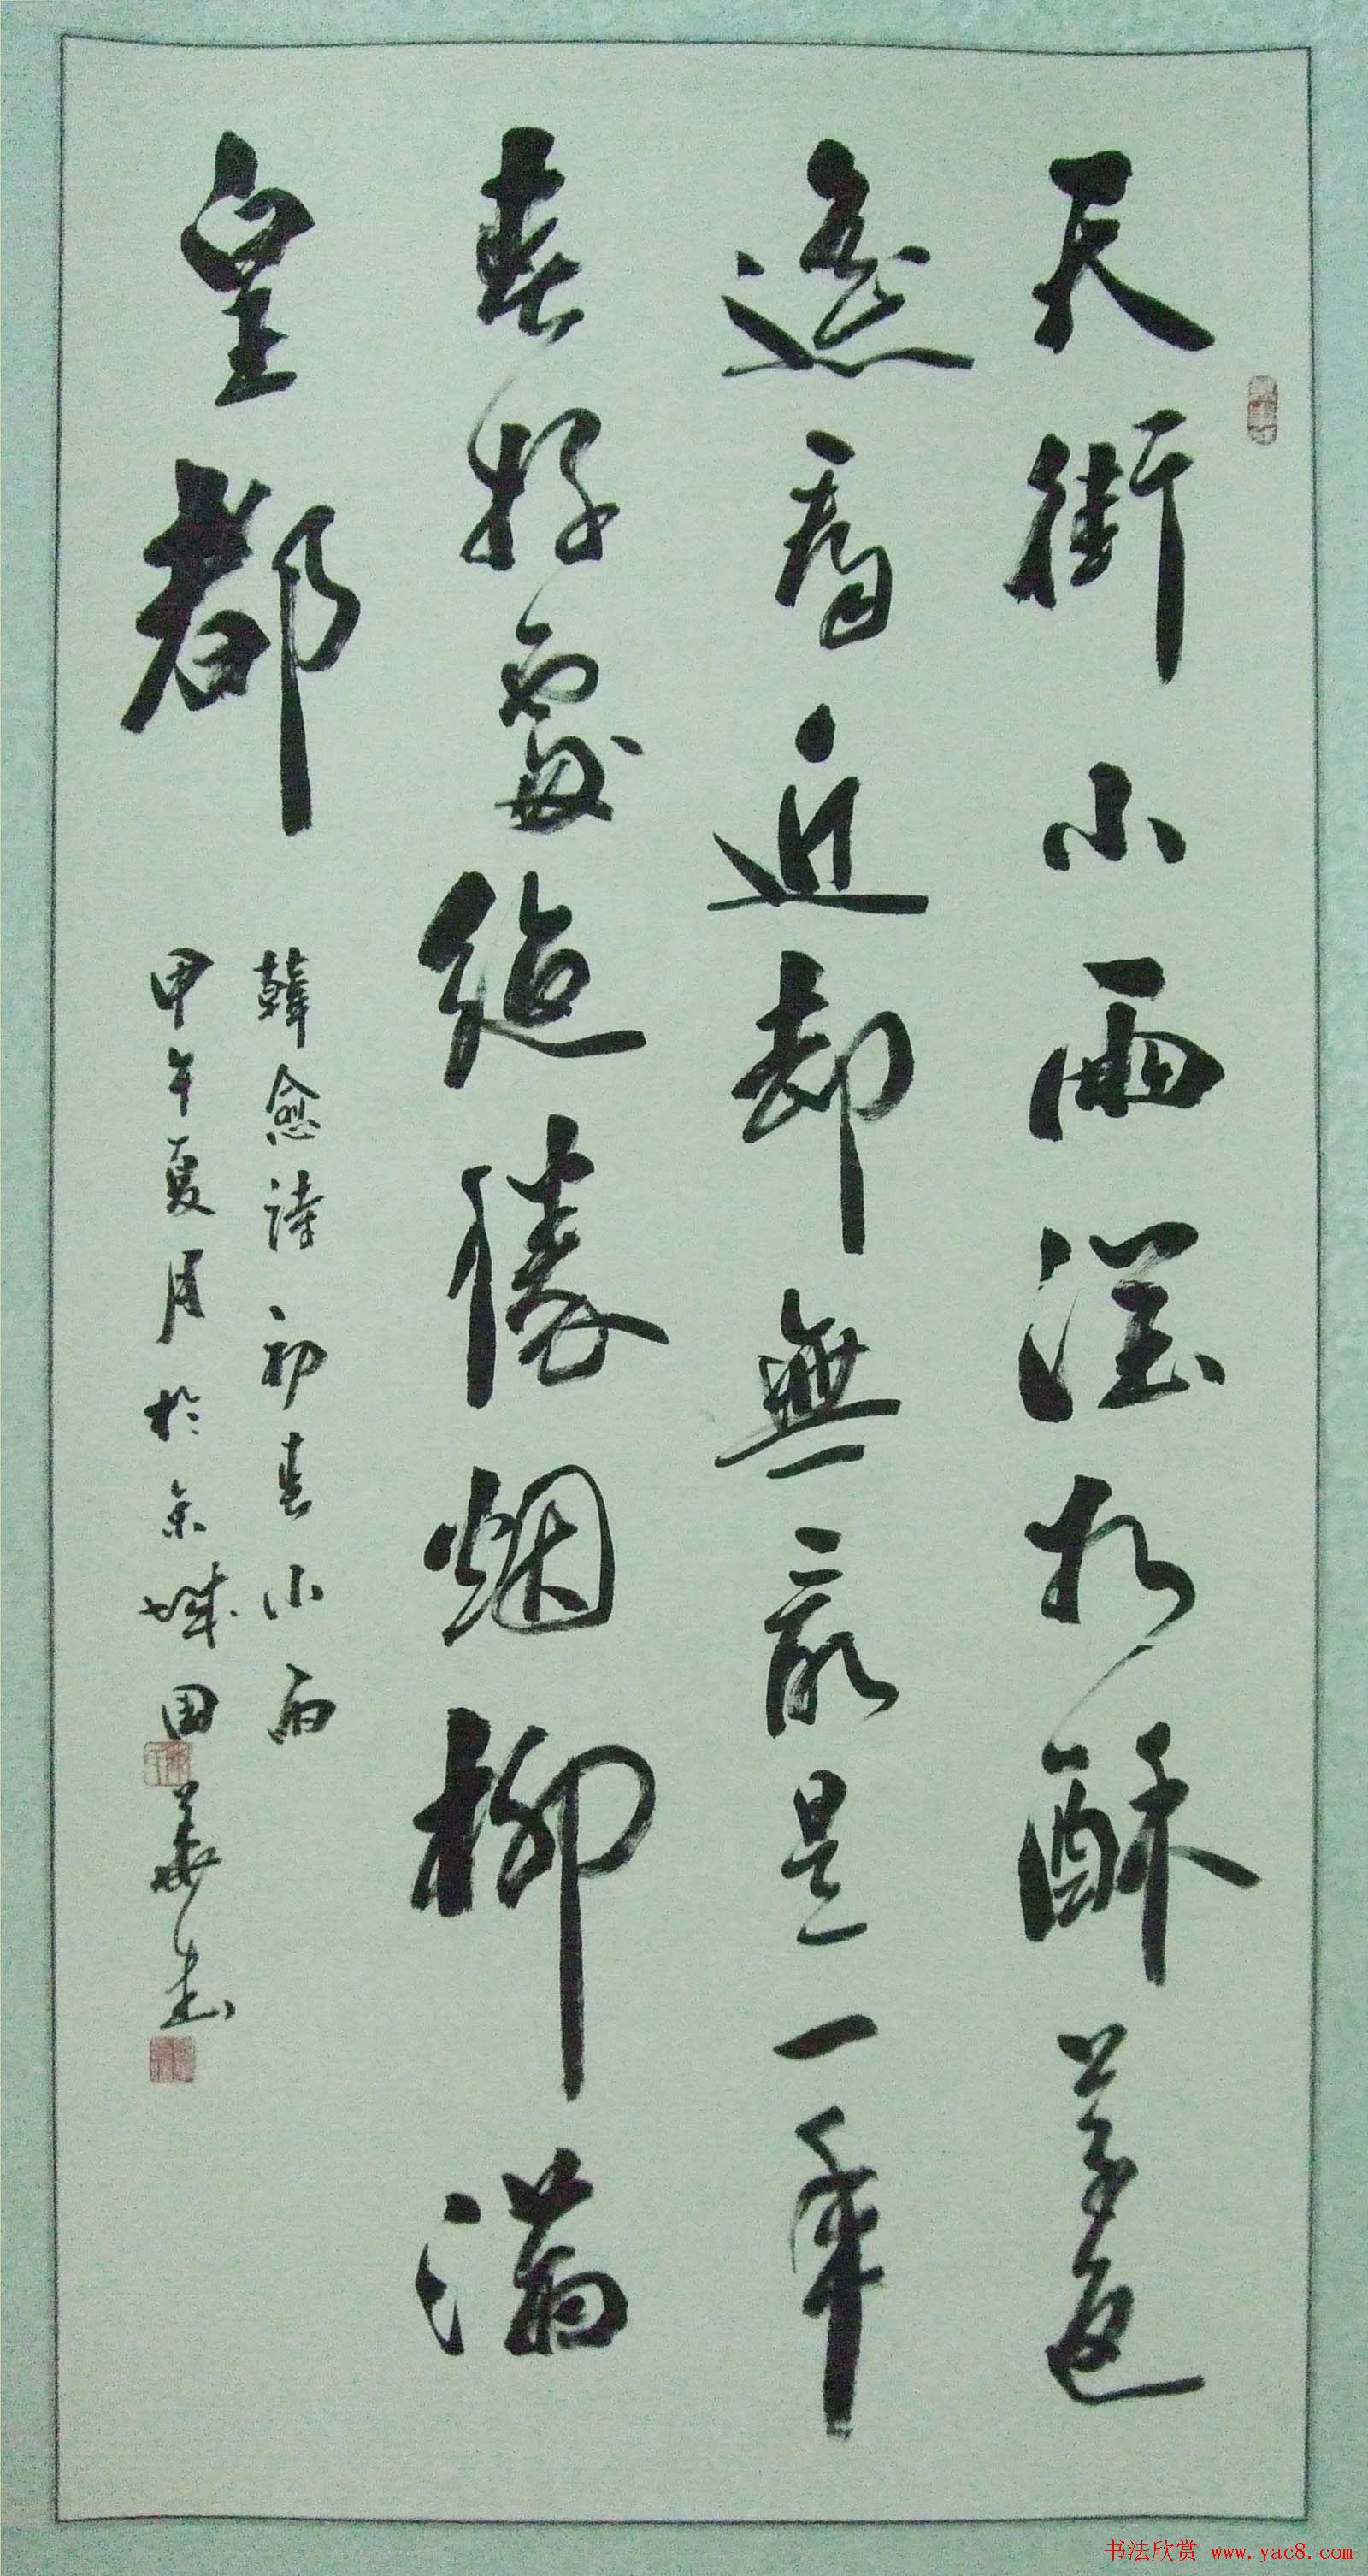 天街小雨潤如酥草色
遙看近却無最是一年
春好處絕勝烟柳滿
皇都
韓愈詩初春小雨
甲午夏月於京城国華書
书法欣赏 www.yac8.com